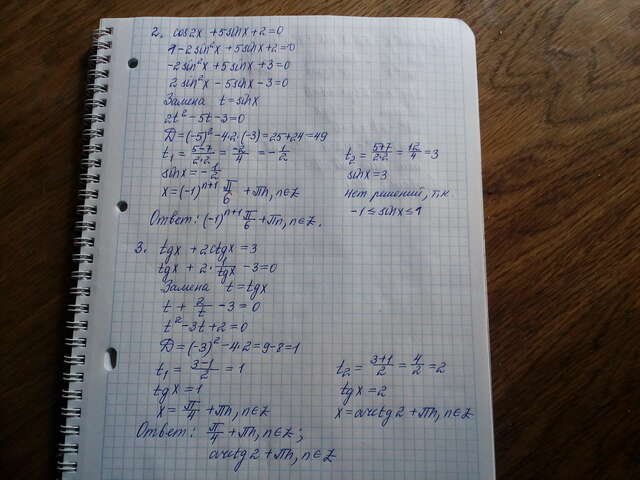 2. cos2x + 5sinx + 2 = 0
1 - 2sin²x + 5sinx + 2 = 0
-2sin²x + 5sinx + 3 = 0
2sin²x - 5sinx - 3 = 0
Замена t = sinx
2t² - 5t - 3 = 0
D = (-5)² - 4·2·(-3) = 25 + 24 = 49
t₁ = (5-7)/(2·2) = -2/4 = -1/2
t₂ = (5+7)/(2·2) = 12/4 = 3
sinx = -1/2
sinx = 3
x = (-1)ⁿ⁺¹ π/6 + πn, n∈Z
нет решений, т.к.
-1 ≤ sinx ≤ 1
Ответ: (-1)ⁿ⁺¹ π/6 + πn, n∈Z.
3. tgx + 2ctgx = 3
tgx + 2·1/tgx - 3 = 0
Замена t = tgx
t + 2/t - 3 = 0
t² - 3t + 2 = 0
D = (-3)² - 4·2 = 9 - 8 = 1
t₁ = (3-1)/2 = 1
t₂ = (3+1)/2 = 4/2 = 2
tgx = 1
tgx = 2
x = π/4 + πn, n∈Z
x = arctg2 + πn, n∈Z
Ответ: π/4 + πn, n∈Z;
arctg2 + πn, n∈Z